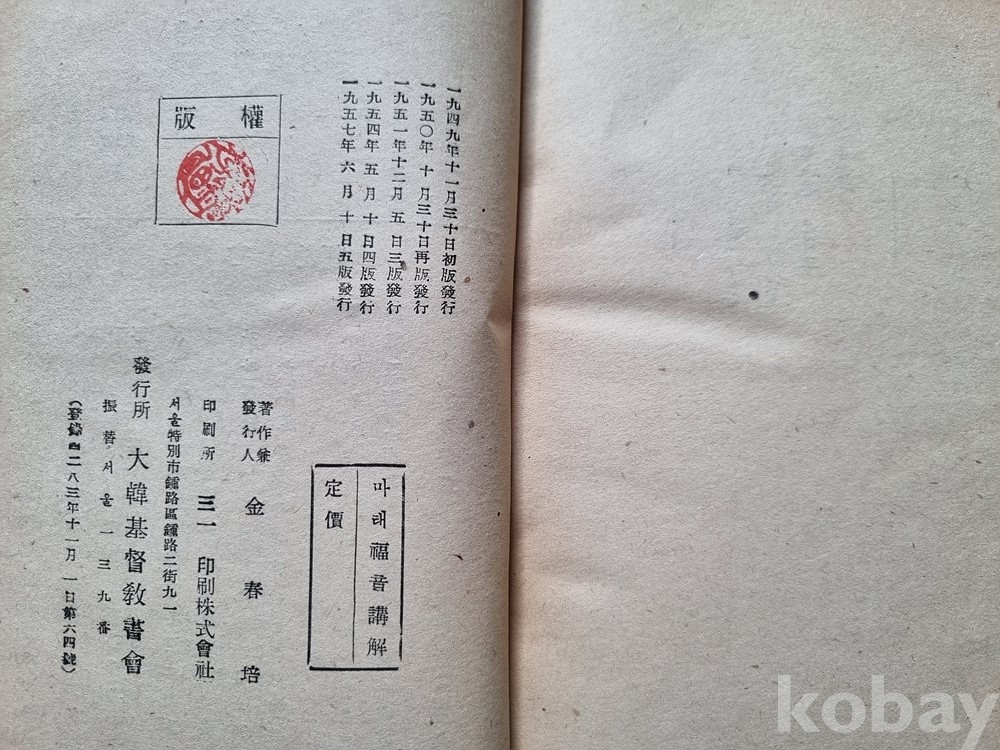 一九四九年十一月三十日初版發行
一九五〇年十月三十日再版發行
一九五一年十二月五日三版發行
一九五四年五月十日四版發行
一九五七年六月十日五版發行
版權
마태福音講解
定價
著作兼
發行人 金春培
印刷所 三一印刷株式會社
서울特別市鍾路區鍾路二街九一
發行所 大韓基督敎書會
振替서울一三九番
(登錄四二八三年十一月一日第六四號)
kobay